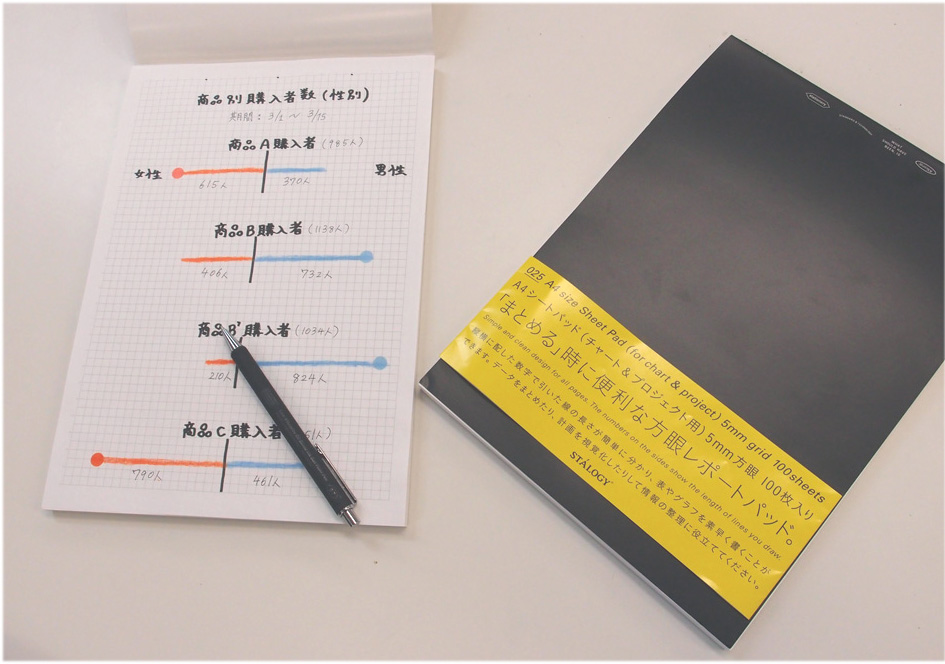 商品別購入者数(性別)
期間: 3/1 ~ 3/15
商品A購入者(985人)
女性
男性
615人
370人
商品B購入者(1138人)
406人
732人
商品B'購入者(1034人)
210人
824人
商品C購入者
790人
461人
025 A4 size Sheet Pad (for chart & project) 5mm grid 100sheets
A4シートパッド(チャート&プロジェクト用) 5mm方眼 100枚入り
「まとめる」時に便利な方眼レポートパッド。
Simple and clean design for all pages. The numbers on the sides show the length of lines you draw.
両端に配した数字で引いた線の長さが簡単に分かり、表やグラフを素早く書くことが
できます。データをまとめたり、計画を視覚化したりして情報の整理に役立ててください。
STALOGY